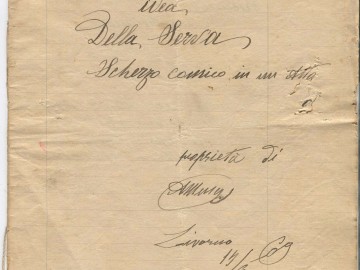 Della Serva
Scherzo comico in un Atto
proprietà di
Livorno